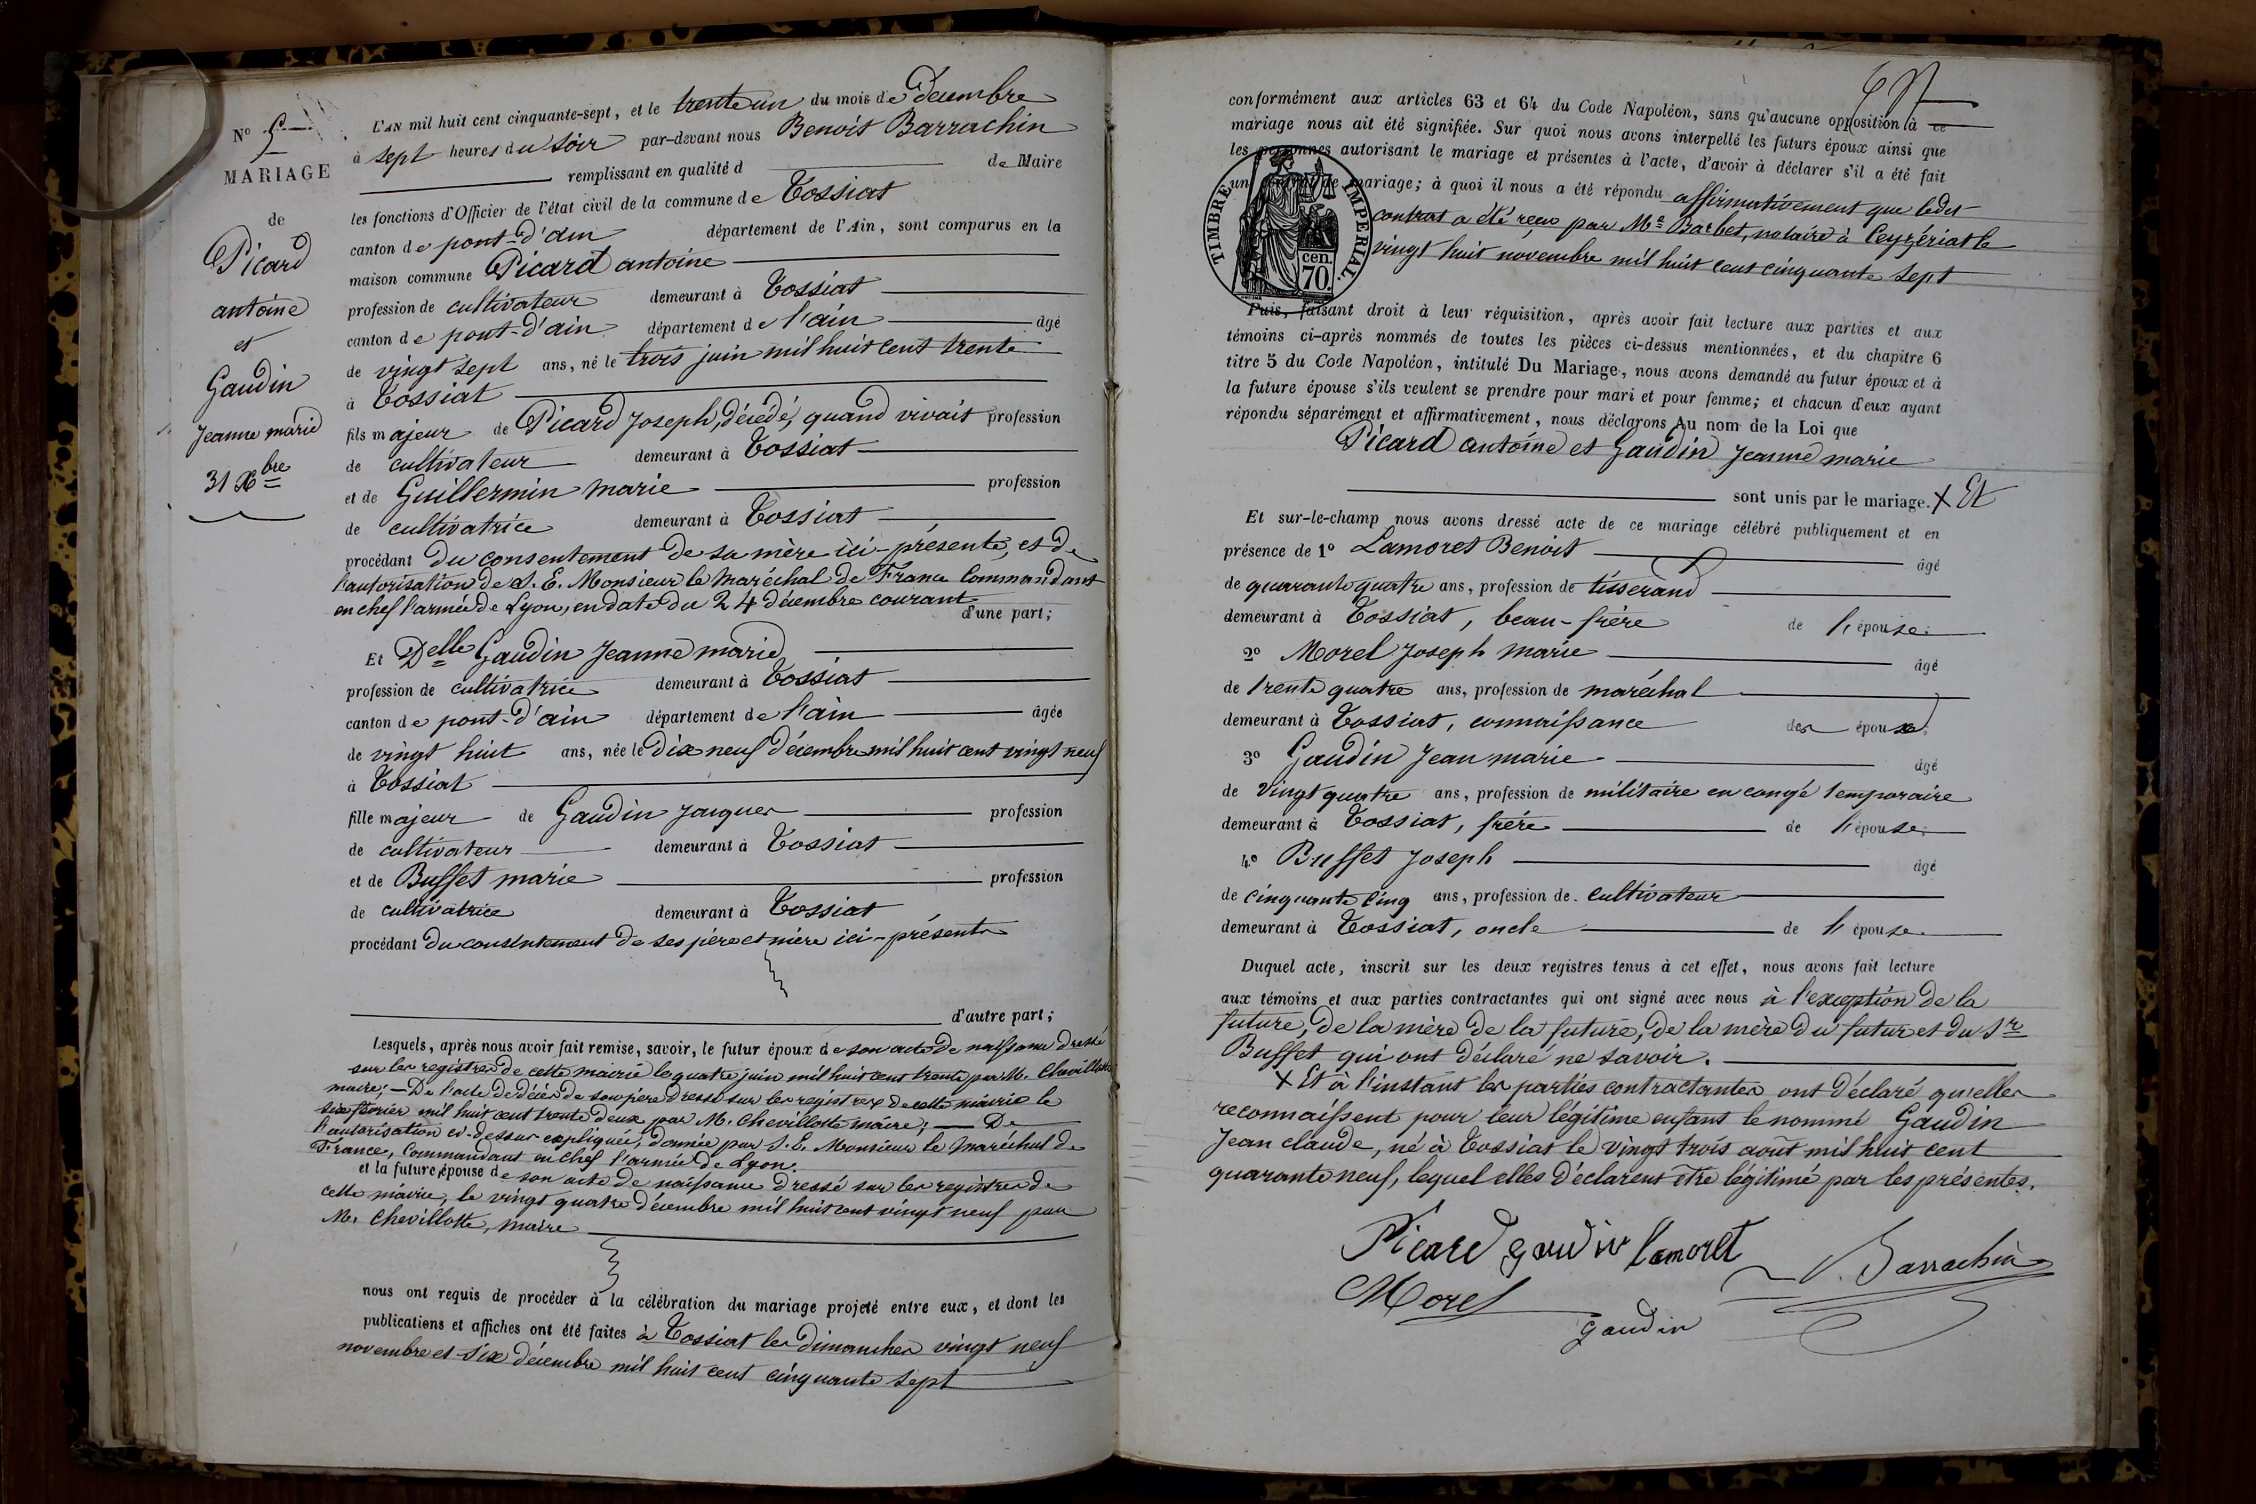 N° 5
MARIAGE
de
Picard
antoine
et
Gaudin
Jeanne marie
31 Xbre
L'AN mil huit cent cinquante-sept, et le trente un du mois de décembre
à sept heures du soir par-devant nous Benoît Barrachin
remplissant en qualité d de Maire
les fonctions d'Officier de l'état civil de la commune de Tossiat
canton de pont-d'ain département de l'Ain, sont comparus en la
maison commune Picard antoine
profession de cultivateur demeurant à Tossiat
canton de pont-d'ain département de l'ain âgé
de vingt sept ans, né le trois juin mil huit cent trente
à Tossiat
fils majeur de Picard Joseph, décédé, quand vivait profession
de cultivateur demeurant à Tossiat
et de Guillermin marie profession
de cultivatrice demeurant à Tossiat
procédant du consentement de sa mère ici-présente, et de
l'autorisation de S. E. Monsieur le Maréchal de France Commandant
en chef l'armée de Lyon, en date du 24 décembre courant
d'une part;
Et Delle Gaudin Jeanne marie
profession de cultivatrice demeurant à Tossiat
canton de pont-d'ain département de l'ain âgée
de vingt huit ans, née le dix neuf décembre mil huit cent vingt neuf
à Tossiat
fille majeur de Gaudin Jacques profession
de cultivateur demeurant à Tossiat
et de Buffet marie profession
de cultivatrice demeurant à Tossiat
procédant du consentement de ses père et mère ici-présents
d'autre part;
Lesquels, après nous avoir fait remise, savoir, le futur époux de son acte de naissance dressé
sur les registres de cette mairie le quatre juin mil huit cent trente par M. Chevillotte
maire; — De l'acte de décès de son père dressé sur les registres de cette mairie le
six février mil huit cent trente deux par M. Chevillotte maire; — De
l'autorisation ci-dessus expliquée, donnée par S. E. Monsieur le Maréchal de
France, Commandant en chef l'armée de Lyon.
et la future épouse de son acte de naissance dressé sur les registres de
cette mairie, le vingt quatre décembre mil huit cent vingt neuf par
M. Chevillotte, maire
nous ont requis de procéder à la célébration du mariage projeté entre eux, et dont les
publications et affiches ont été faites à Tossiat les dimanches vingt neuf
novembre et six décembre mil huit cent cinquante sept
conformément aux articles 63 et 64 du Code Napoléon, sans qu'aucune opposition à ce
mariage nous ait été signifiée. Sur quoi nous avons interpellé les futurs époux ainsi que
les personnes autorisant le mariage et présentes à l'acte, d'avoir à déclarer s'il a été fait
un de mariage; à quoi il nous a été répondu affirmativement que ledit
contrat a été reçu par Me Barbet, notaire à Ceyzériat le
vingt huit novembre mil huit cent cinquante sept
TIMBRE IMPERIAL.
cen.
70.
Puis, faisant droit à leur réquisition, après avoir fait lecture aux parties et aux
témoins ci-après nommés de toutes les pièces ci-dessus mentionnées, et du chapitre 6
titre 5 du Code Napoléon, intitulé Du Mariage, nous avons demandé au futur époux et à
la future épouse s'ils veulent se prendre pour mari et pour femme; et chacun d'eux ayant
répondu séparément et affirmativement, nous déclarons Au nom de la Loi que
Picard antoine et Gaudin Jeanne marie
sont unis par le mariage. X Et
Et sur-le-champ nous avons dressé acte de ce mariage célébré publiquement et en
présence de 1° Lamoret Benoit
âgé
de quarante quatre ans, profession de tisserand
demeurant à Tossiat, beau-frère de l'épouse;
2° Morel Joseph marie
âgé
de trente quatre ans, profession de maréchal
demeurant à Tossiat, connaissance des époux;
3° Gaudin Jean marie
âgé
de vingt quatre ans, profession de militaire en congé temporaire
demeurant à Tossiat, frère de l'épouse;
4° Buffet Joseph
âgé
de cinquante cinq ans, profession de cultivateur
demeurant à Tossiat, oncle de l'épouse.
Duquel acte, inscrit sur les deux registres tenus à cet effet, nous avons fait lecture
aux témoins et aux parties contractantes qui ont signé avec nous à l'exception de la
future, de la mère de la future, de la mère du futur et du Sr
Buffet qui ont déclaré ne savoir.
X Et à l'instant les parties contractantes ont déclaré qu'elles
reconnaissent pour leur légitime enfant le nommé Gaudin
Jean claude, né à Tossiat le vingt trois août mil huit cent
quarante neuf, lequel elles déclarent être légitimé par les présentes.
Picard gaudin Lamoret
B. Barrachin
Morel
gaudin